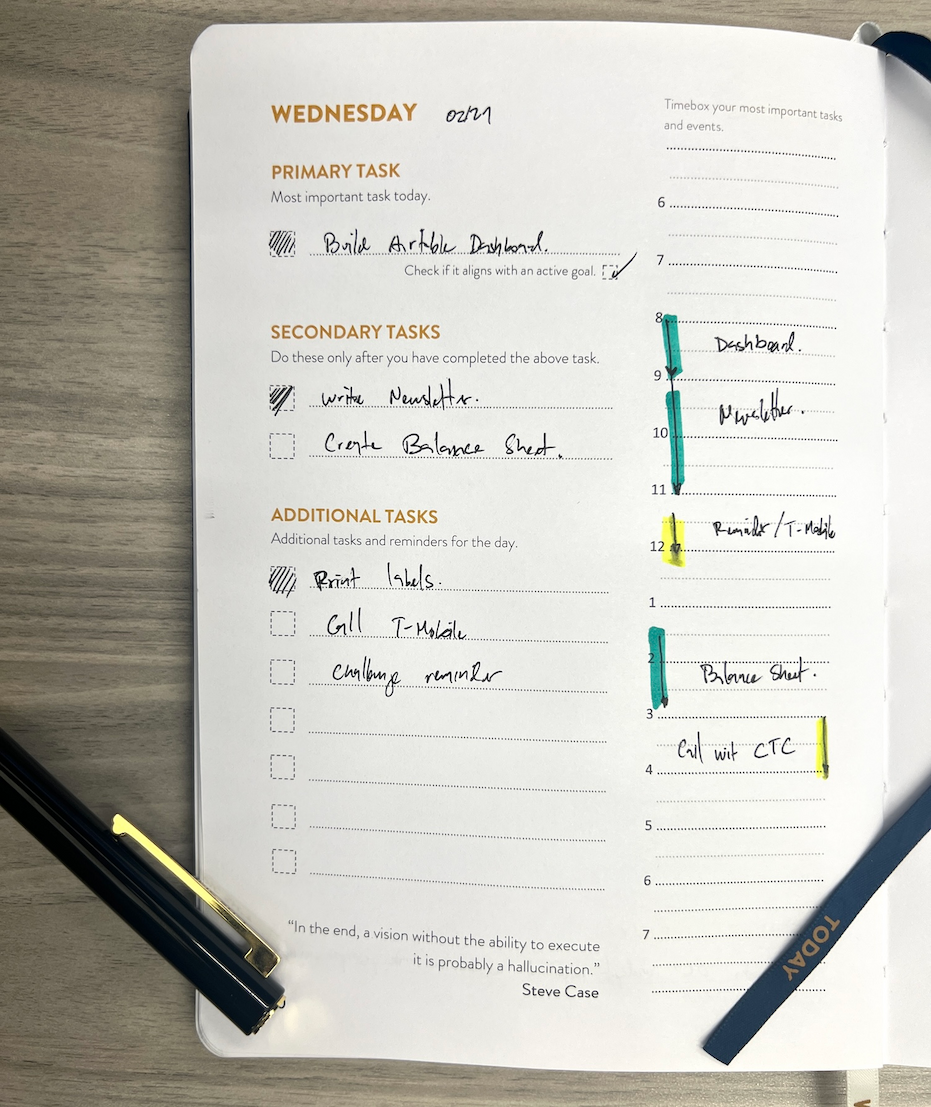 WEDNESDAY 02/21
PRIMARY TASK
Most important task today.
Build Airtable Dashboard.
Check if it aligns with an active goal.
SECONDARY TASKS
Do these only after you have completed the above task.
Write Newsletter.
Create Balance Sheet.
ADDITIONAL TASKS
Additional tasks and reminders for the day.
Print labels.
Call T-Mobile
Challenge reminder
“In the end, a vision without the ability to execute
it is probably a hallucination.”
Steve Case
Timebox your most important tasks
and events.
6
7
8
Dashboard.
9
Newsletter.
10
11
Reminder/T-Mobile
12
1
2
Balance Sheet.
3
Call wit CTC
4
5
6
7
TODAY